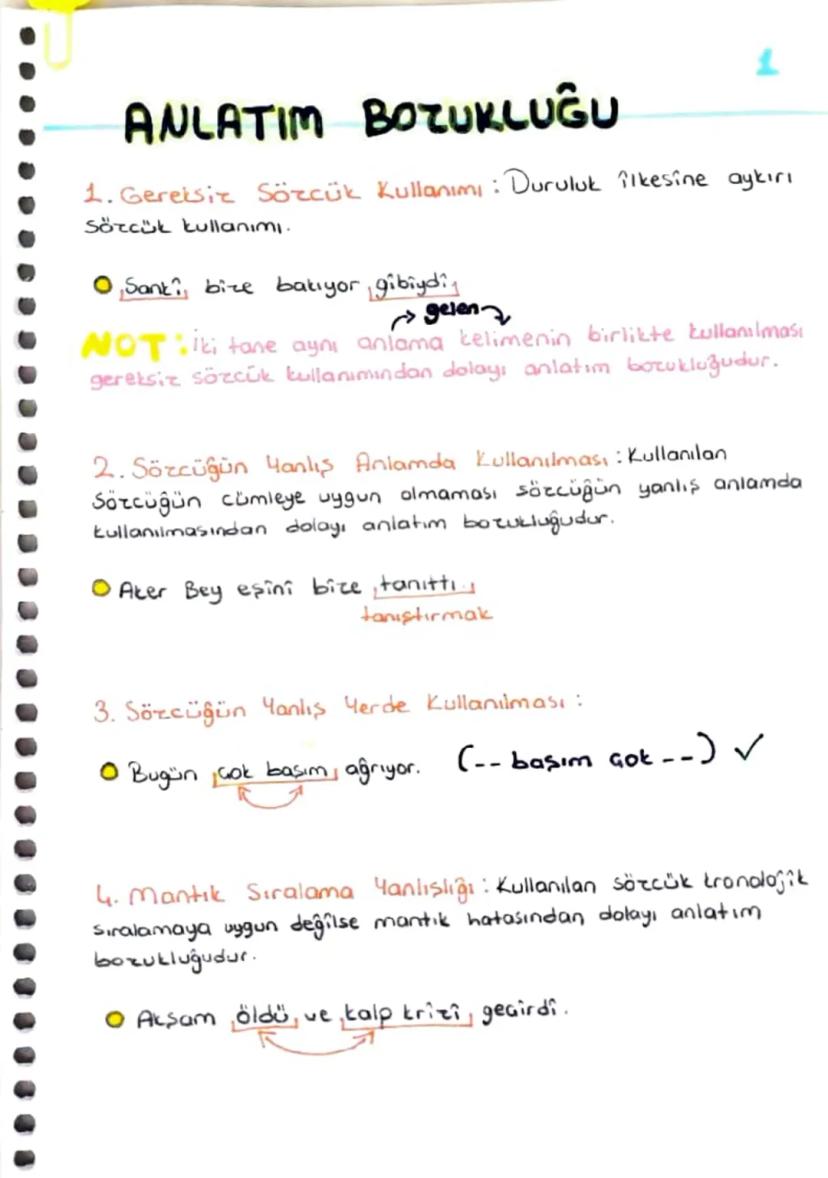 1
ANLATIM BOZUKLUĞU
1. Gereksiz Sözcük Kullanımı : Duruluk ilkesine aykırı
sözcük kullanımı.
Sanki bize bakıyor gibiydi
gelen
NOT : İki tane aynı anlama kelimenin birlikte kullanılması
gereksiz sözcük kullanımından dolayı anlatım bozukluğudur.
2. Sözcüğün Yanlış Anlamda Kullanılması : Kullanılan
sözcüğün cümleye uygun olmaması sözcüğün yanlış anlamda
kullanılmasından dolayı anlatım bozukluğudur.
Aker Bey eşini bize tanıttı.
tanıştırmak
3. Sözcüğün Yanlış Yerde Kullanılması :
Bugün çok başım ağrıyor. (-- başım çok --) ✓
4. Mantık Sıralama Yanlışlığı : Kullanılan sözcük kronolojik
sıralamaya uygun değilse mantık hatasından dolayı anlatım
bozukluğudur.
Akşam öldü ve kalp krizi geçirdi.